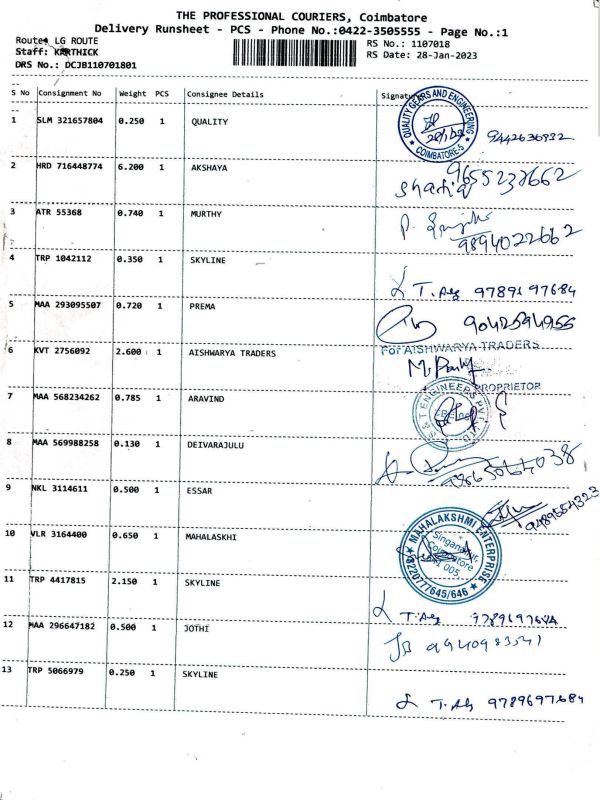 THE PROFESSIONAL COURIERS, Coimbatore
Delivery Runsheet - PCS - Phone No.:0422-3505555 - Page No.:1
Route: LG ROUTE RS No.: 1107018
Staff: KARTHICK RS Date: 28-Jan-2023
DRS No.: DCJB110701801
S No Consignment No Weight PCS Consignee Details Signature
1 SLM 321657804 0.250 1 QUALITY QUALITY GEARS AND ENGINEERING COIMBATORE-5 9442636932
2 HRD 716448774 6.200 1 AKSHAYA 9655237662
3 ATR 55368 0.740 1 MURTHY 9894022662
4 TRP 1042112 0.350 1 SKYLINE 9789197684
5 MAA 293095507 0.720 1 PREMA 9042594955
6 KVT 2756092 2.600 1 AISHWARYA TRADERS For AISHWARYA TRADERS
PROPRIETOR
7 MAA 568234262 0.785 1 ARAVIND S & T ENGINEERS PVT LTD
8 MAA 569988258 0.130 1 DEIVARAJULU
9 NKL 3114611 0.500 1 ESSAR 9489554323
10 VLR 3164400 0.650 1 MAHALASKHI MAHALAKSHMI ENTERPRISE Singanallur, Coimbatore 641 005. 8220777645/646
11 TRP 4417815 2.150 1 SKYLINE
12 MAA 296647182 0.500 1 JOTHI JB 9940983541
13 TRP 5066979 0.250 1 SKYLINE 9789697684